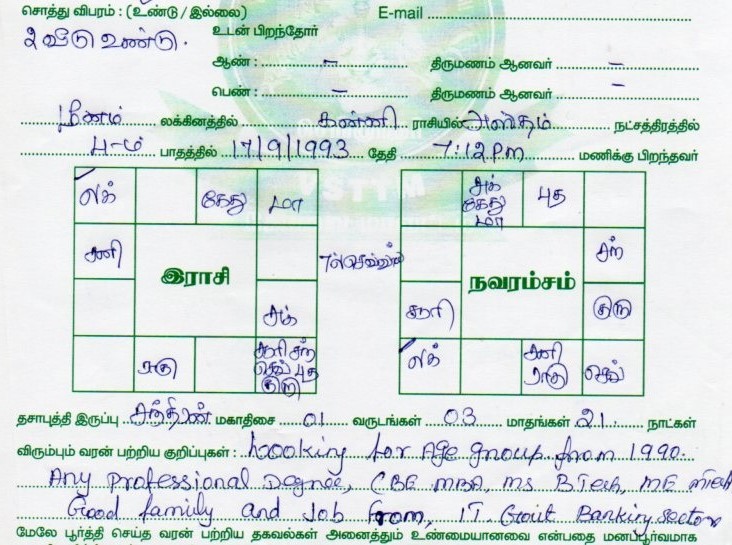 சொத்து விபரம் : (உண்டு / இல்லை) E-mail
2 வீடு உண்டு. உடன் பிறந்தோர்
ஆண் : – திருமணம் ஆனவர் –
பெண் : – திருமணம் ஆனவர் –
மீனம் லக்கினத்தில் கன்னி ராசியில் அஸ்தம் நட்சத்திரத்தில்
4-ம் பாதத்தில் 17/9/1993 தேதி 7:12 Pm மணிக்கு பிறந்தவர்
லக் கேது மா
சனி
இராசி
சுக்
ராகு சூரி சந் செவ் புத குரு
7ல் செவ்வாய்
சுக் கேது மா புத
சந்
நவரம்சம்
சூரி குரு
லக் சனி ராகு செவ்
தசாபுத்தி இருப்பு சந்திரன் மகாதிசை 01 வருடங்கள் 03 மாதங்கள் 21 நாட்கள்
விரும்பும் வரன் பற்றிய குறிப்புகள் : Looking for Age group from 1990.
Any professional Degree, CBE MBA, MS BTech, ME MTech
Good family and Job from, IT. Govt Banking sector
மேலே பூர்த்தி செய்த வரன் பற்றிய தகவல்கள் அனைத்தும் உண்மையானவை என்பதை மனப்பூர்வமாக